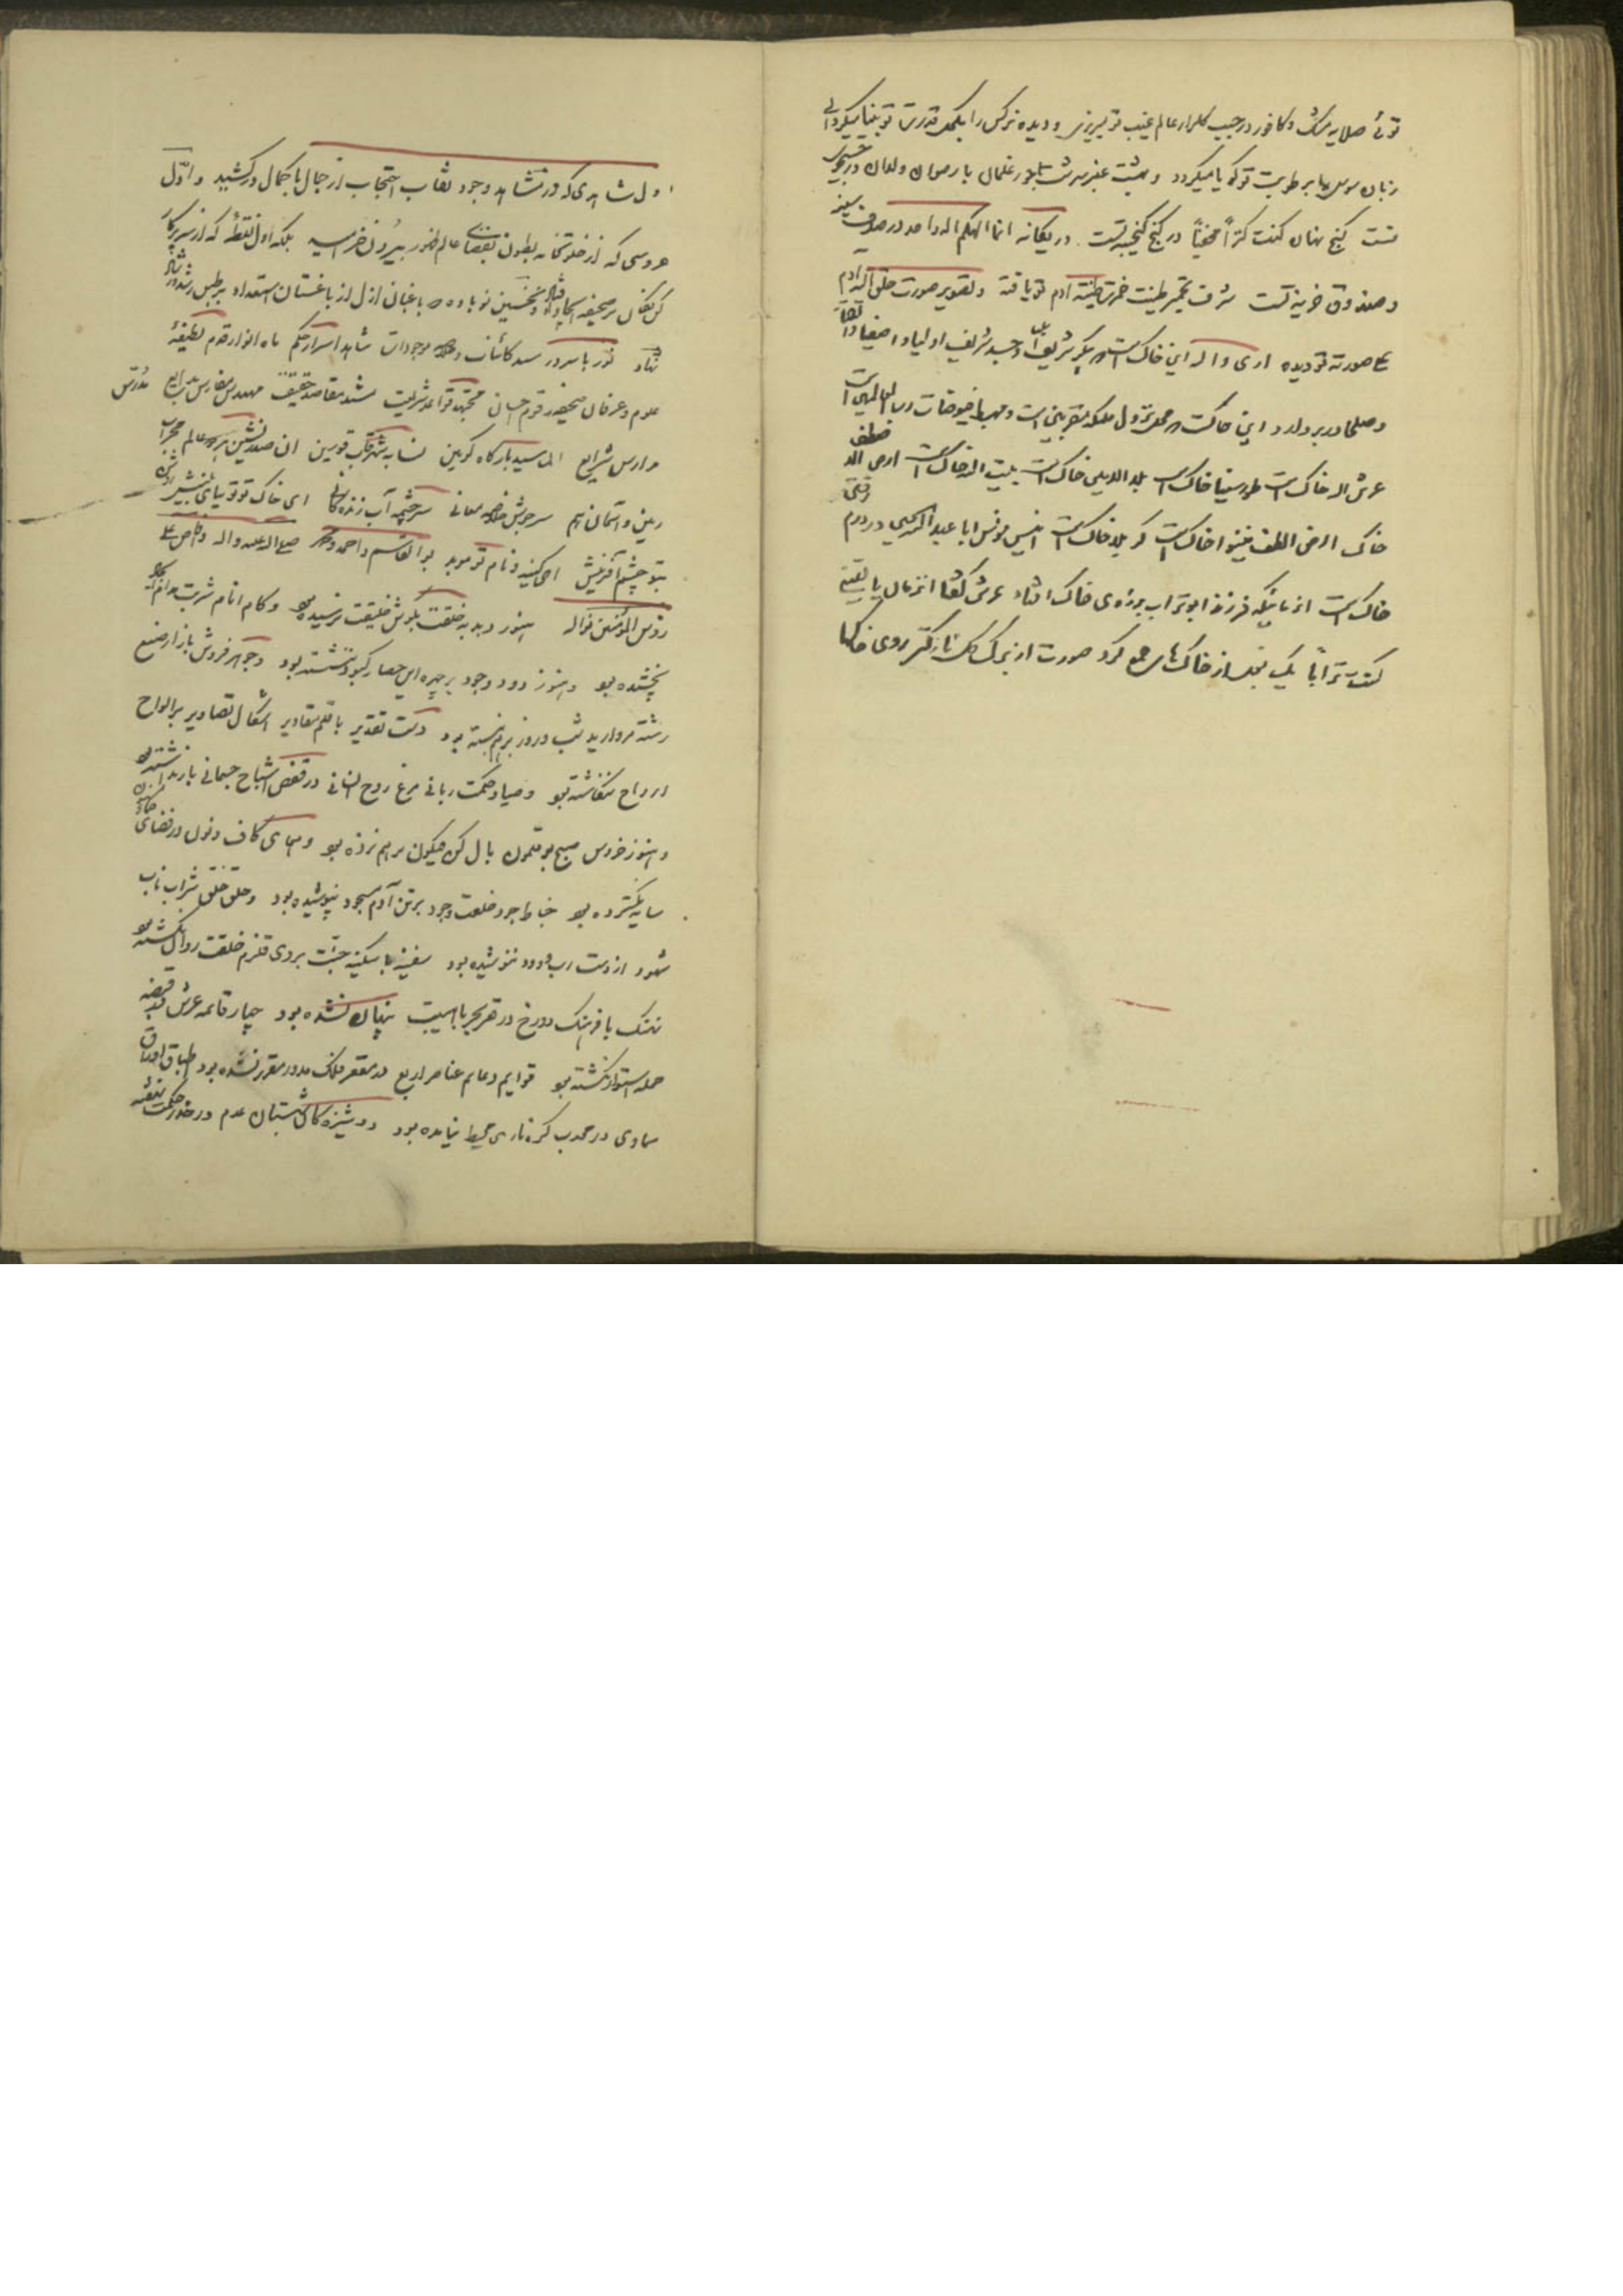 توئی صلایه مشک و کافور در جیب گلزار عالم غیب تو میریزی و دیده نرکس را بکحل قدرت تو بینا میکردانی
زبان سوسن را برطوبت تو کویا میکردد و بهشت عنبر سرشت بلور غلمان با رضوان ولدان در
تست کنج نهان کنت کنزاً مخفیاً در کنج کنجینه تست در یکانه انما الهکم اله واحد در صدف سینه
و صندوق خزینه تست شرف تخمیر طینت خمرت طینة ادم تو یافته و تصویر صورت خلق الله ادم
علی صورته تو دیده اری والله این خاک است که پیکر شریف و جسد شریف اولیا و اصفیا و اتقیا
و صلحا در بر دارد این خاکست که محل نزول ملائکه مقربین است و مهبط فیوضات رب العالمین است
عرش اله خاک است طور سینا خاک است بلد الامین خاک است بیت اله خاک است ارض اله
خاک ارض الطف نینوا خاک است کربلا خاک است انیس مونس ابا عبد الله الحسین در دم
خاک است از مانیکه فرزند ابوتراب بروی خاک افتاد عرش گفتا انزمان یا لیتنی
کنت تراباً یک بغل از خاک‌ها جمع کرد صورت از برک کل نازکتر روی خاکها
اول شاهدی که در مشاهد وجود نقاب احتجاب از جمال با کمال در کشید و اول
عروسی که از خلوتخانه بطون بفضای عالم ظهور بیرون خرامید بلکه اول نقطه که از سر پرکار
کن فکان بر صحیفه ایجاد افتاد و نخستین نوباوه که باغبان ازل از باغستان استعداد بر طبق رشد و ارشاد
نهاد نور باسرور سید کائنات و موجودات شاهد اسرار حکم ماه انوار قدم لطیفهٔ
علوم و عرفان صحیفه رقوم احسان مجتهد قواعد شریعت مسند مقاصد حقیقت مهندس مدارس بدایع مدرس
مدارس شرایع اما سید بارکاه کونین نسابه شهر قاب قوسین ان صدرنشین هر دو عالم محراب
زمین و اسمان هم سرجوش معانی سرچشمه آب زندکانی ای خاک تو توتیای بینش روشن
بتو چشم آفرینش احمد کنیه و نام تو موبد بوالقاسم و احمد و محمد صلی اله علیه و اله و علی
رؤس المؤمنین نواله هنوز دبدبه خلقت بکوش خلیقت نرسیده بود و کام انام شربت مرام
نچشیده بود و هنوز دود وجود بر چهره این حصار کبود ننشسته بود و جوهر فروش بازار صنع
رشته مروارید شب و روز بر هم نبسته بود دست تقدیر با قلم مقادیر اشکال تصاویر بر الواح
ارواح ننکاشته بود و صیاد حکمت ربانی مرغ روح انسانی در قفص اشباح جسمانی باز نداشته بود
و هنوز خروس صبح بوقلمون بال کن فیکون بر هم نزده بود و همای کاف و نون در فضای
سایه نکسترده بود خیاط جود خلعت وجود بر تن آدم مسجود نپوشیده بود و حلق خلق شراب ناب
شهود از دست رب ودود ننوشیده بود سفینه با سکینه جنت بروی قلزم خلقت روان نکشته بود
نهنک با فرهنک دوزخ در قعر بحر با اسیب پنهان نشده بود چهار قائمه عرش در قبضه
حمله استوار نکشته بود قوایم دعایم عناصر اربع در مقعر فلک مدور مقرر نشده بود طباق اوراق
سماوی در محدب کره ناری محیط نیامده بود دوشیزه کان شبستان عدم در خدر حکمت نهفته